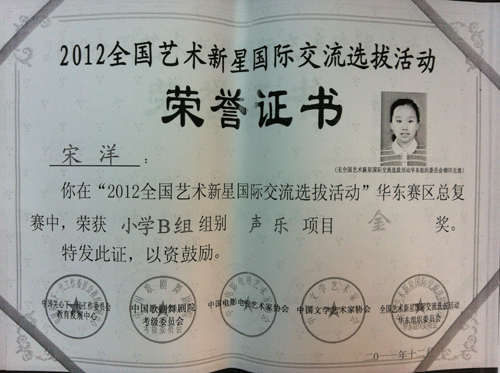 2012全国艺术新星国际交流选拔活动
荣誉证书
(无全国艺术新星国际交流选拔活动华东组织委员会钢印无效)
宋洋：
你在“2012全国艺术新星国际交流选拔活动”华东赛区总复
赛中，荣获 小学B组 组别 声乐 项目 金 奖。
特发此证，以资鼓励。
中国关心下一代工作委员会
教育发展中心
中国歌剧舞剧院
考级委员会
中国电影电视艺术家协会
中国文学艺术家协会
全国艺术新星国际交流选拔活动
华东组织委员会